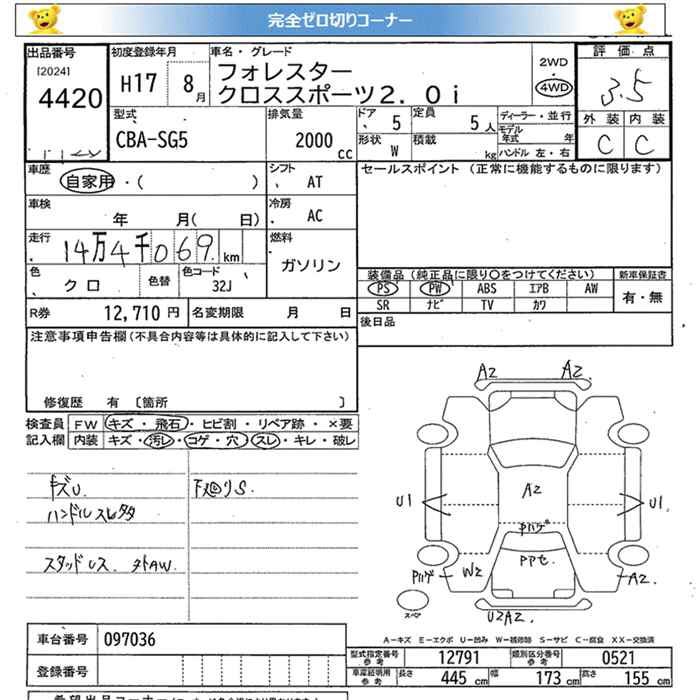 完全ゼロ切りコーナー
出品番号 初度登録年月 車名・グレード 評価点
[2024]
4420 H17 8月 フォレスター 2WD 3.5
クロススポーツ2.0i 4WD
型式 排気量 ドア 定員 ディーラー・並行 外装 内装
CBA-SG5 2000cc 5 5人 モデル年式 年 C C
形状 W 積載 kg ハンドル 左・右
車歴 シフト セールスポイント (正常に機能するものに限ります)
自家用・( ) AT
車検 冷房
年 月( 日) AC
走行 燃料
14万4千069km ガソリン
色 色替 色コード 装備品(純正品に限り〇をつけてください) 新車保証書
クロ 32J PS PW ABS エアB AW 有・無
SR ナビ TV カワ
R券 12,710円 名変期限 月 日 後日品
注意事項申告欄(不具合内容等は具体的に記入して下さい)
修復歴 有 〔箇所 〕
検査員 FW キズ・飛石・ヒビ割・リペア跡・×要
記入欄 内装 キズ・汚レ・コゲ・穴・スレ・キレ・破レ
キズU. 下廻りS.
ハンドルスレ
スタッドレス. 外AW.
A2 A2
A2
U1 U1.
Pハゲ
PPセ
Pハゲ W2 A2.
スペア
U2A2.
A-キズ E-エクボ U-凹み W-補修跡 S-サビ C-腐食 XX-交換済
車台番号 097036
型式指定番号 参考 12791 類別区分番号 参考 0521
登録番号
車庫証明用 参考 長さ 445cm 幅 173cm 高さ 155cm